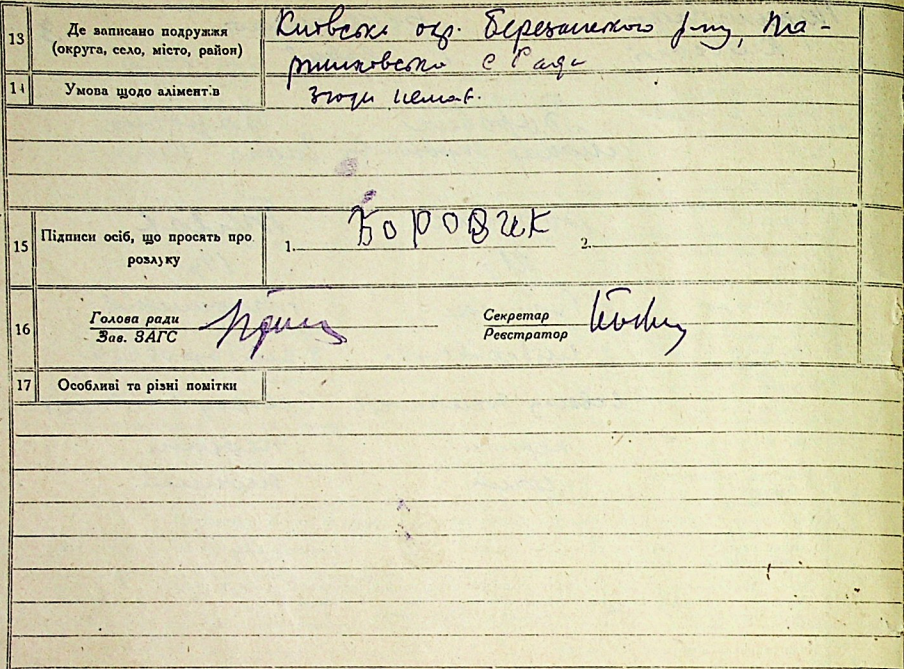 13 Де записано подружжя (округа, село, місто, район) Київська окр. Березанського р-ну,
с Рада
14 Умова щодо аліментів Згоди немає.
15 Підписи осіб, що просять про розлуку 1. Боровик 2.
16 Голова ради
Зав. ЗАГС
Секретар
Реєстратор
17 Особливі та різні помітки